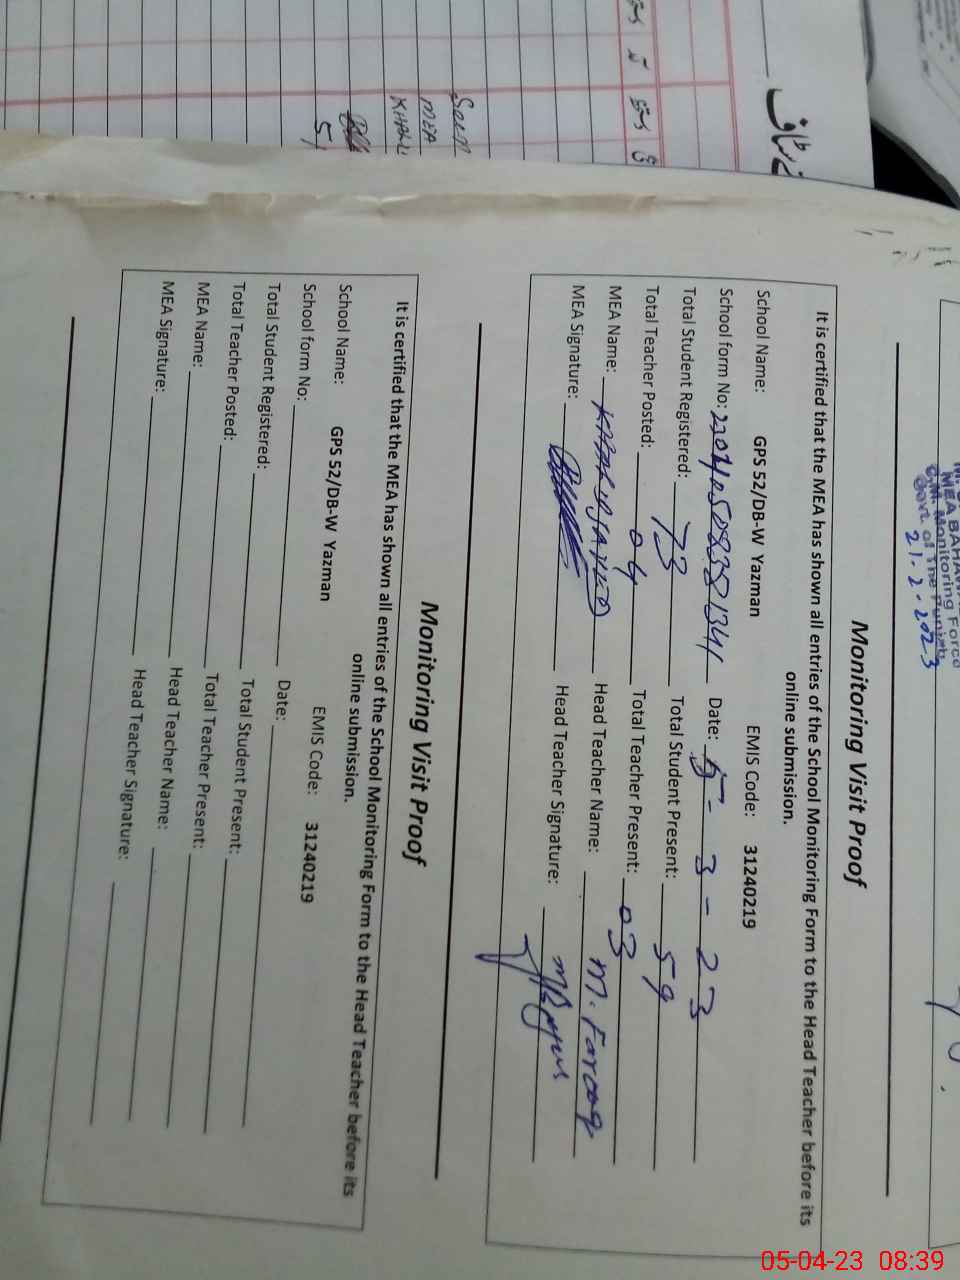 MEA BAHAW
C.M. Monitoring Force
Govt. of The Punjab
21.2.2023
Monitoring Visit Proof
It is certified that the MEA has shown all entries of the School Monitoring Form to the Head Teacher before its
online submission.
School Name: GPS 52/DB-W Yazman EMIS Code: 31240219
School form No: Date: 5-3-23
Total Student Registered: 73 Total Student Present: 59
Total Teacher Posted: 04 Total Teacher Present: 03
MEA Name: Head Teacher Name: M. Farooq
MEA Signature: Head Teacher Signature:
Monitoring Visit Proof
It is certified that the MEA has shown all entries of the School Monitoring Form to the Head Teacher before its
online submission.
School Name: GPS 52/DB-W Yazman EMIS Code: 31240219
School form No: Date:
Total Student Registered: Total Student Present:
Total Teacher Posted: Total Teacher Present:
MEA Name: Head Teacher Name:
MEA Signature: Head Teacher Signature:
05-04-23 08:39